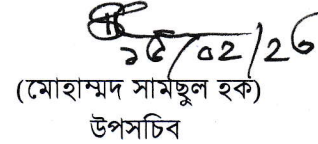 ১৫/০২/২৬
(মোহাম্মদ সামছুল হক)
উপসচিব